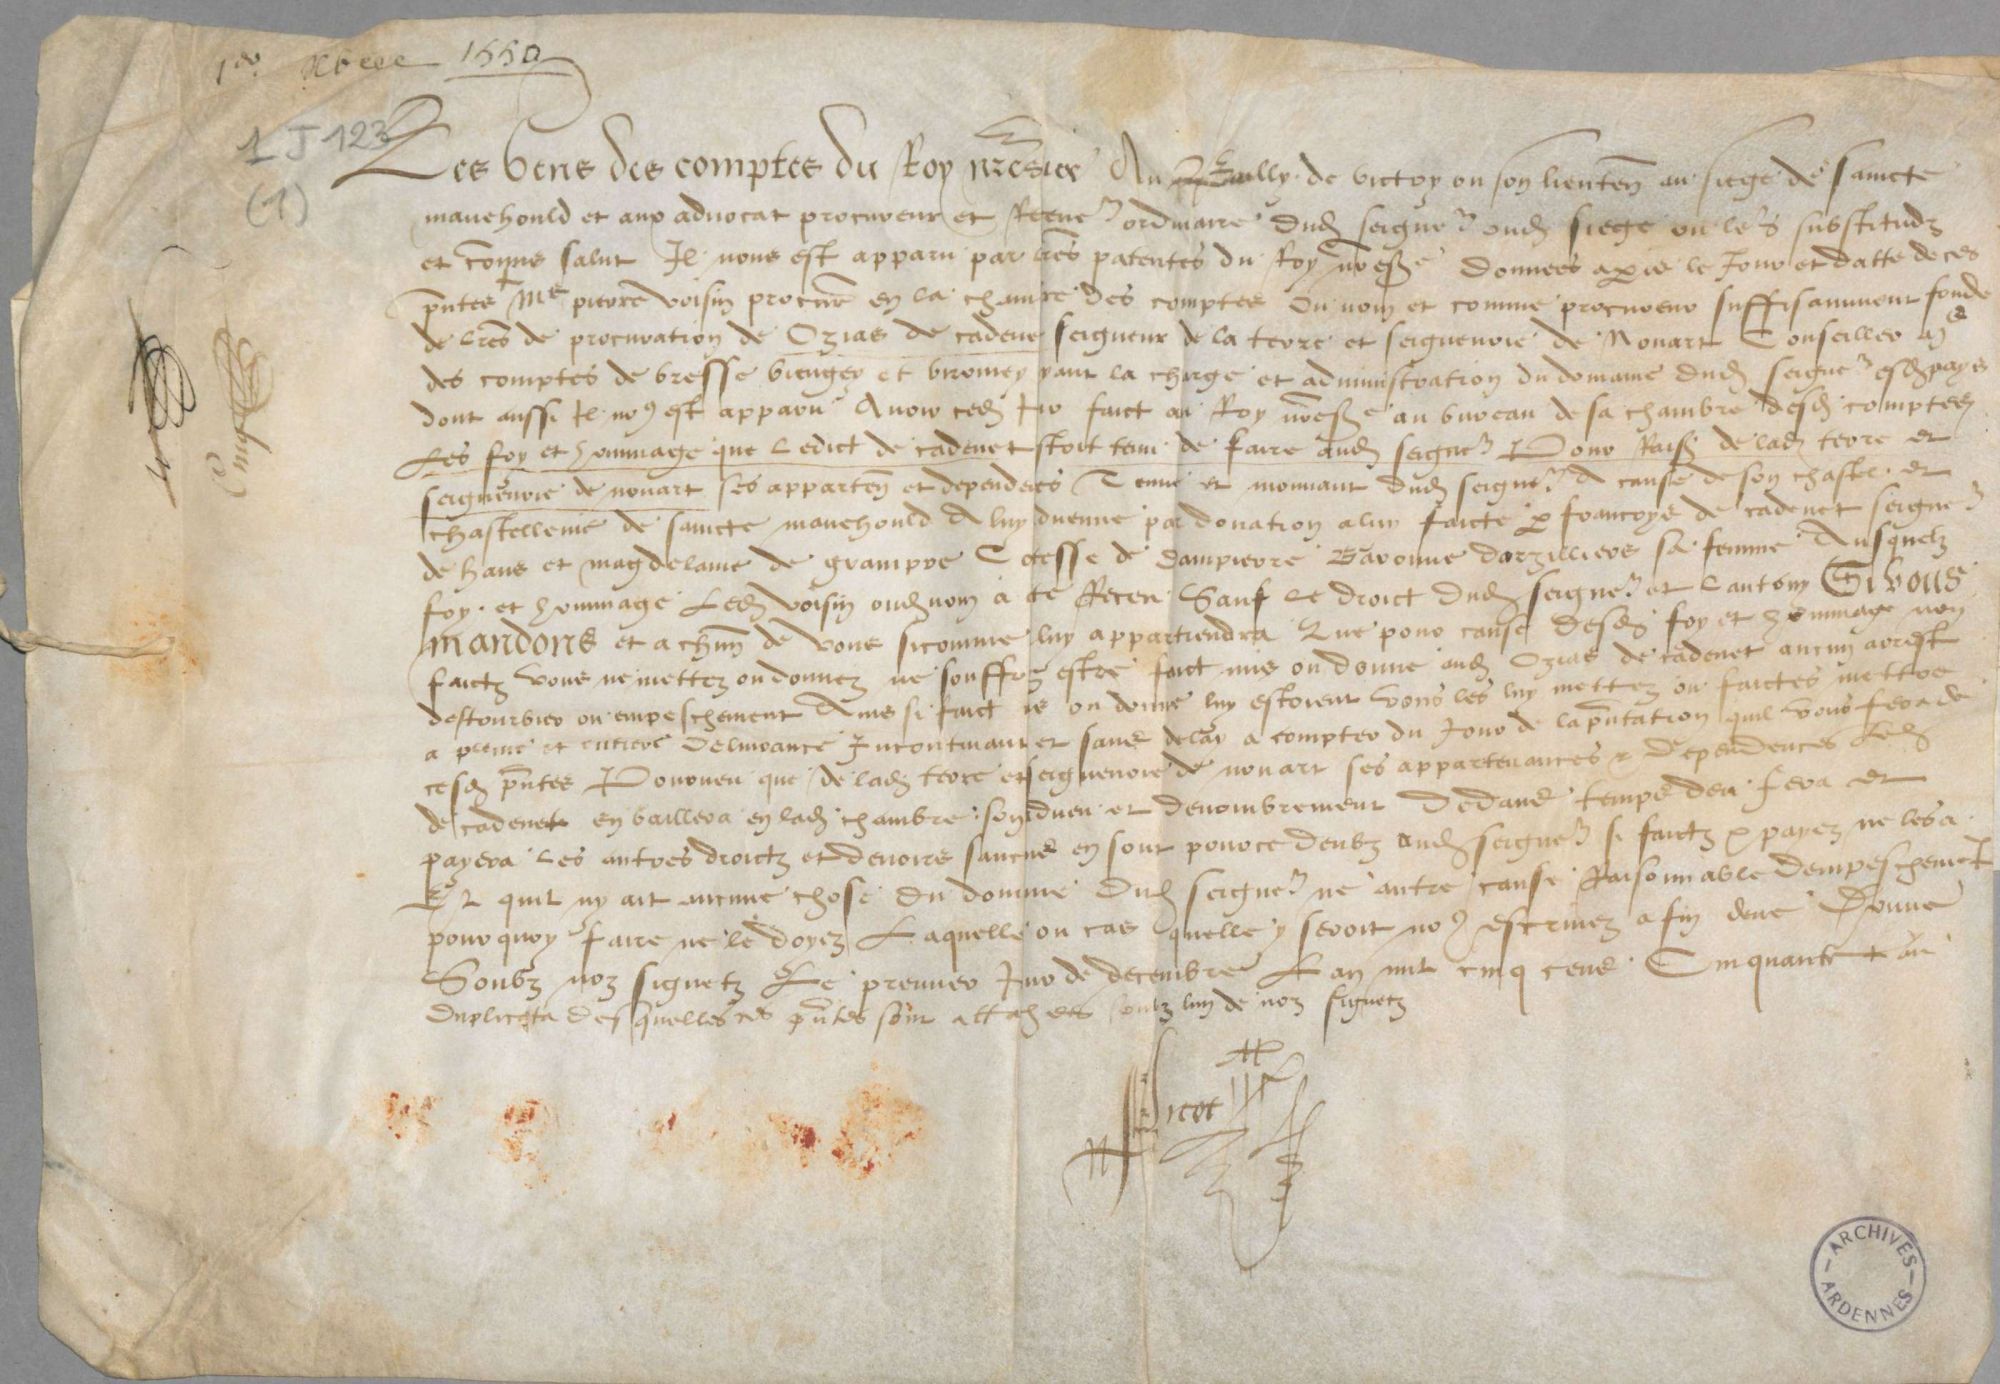 1er Xbre 1550
1 J 123
(1)
Les gens des comptes du Roy nre sire Au Bailly de victry ou son lieuten au siege de saincte
manehould et aux advocat procureur et Recev ordinaire dud seigne oud siege ou leurs substitudz
et commis salut Il nous est apparu par lres patentes du Roy nred s donnees a paris le Jour et datte de ces
pntes Me pierre voisin procur en la chambre des comptes Ou nom et comme procureur suffisamment fonde
de lres de procuration de Ozias de cadenet seigneur de la terre et seigneurie de Nouart Conseiller
des comptes de bresse beugey et veromey yant la charge et administration du domaine dud seigne esd pays
dont aussi Il no9 est apparu Avoir ced Jour faict au Roy nred s au bureau de sa chambre desd comptes
Les foy et hommage que Ledict de cadenet estoit tenu de faire aud seigne Pour Raison de lad terre et
seigneurie de nouart ses apparten et dependences Tenu et mouvant dud seigne A cause de son chastel et
chastellenie de saincte manehould A luy advenue par donation a luy faicte p francoys de cadenet seigne
de hans et magdelaine de grampre Ctesse de dampierre Baronne darzillieres sa femme Ausquelz
foy et hommage Led voisin oud nom a este Receu Sauf Le droict dud seigne et Lautruy Si vous
mandons et a chun de vous sicomme luy appartiendra Que pour cause desd foy et hommage non
faictz vous ne mettez ou donnez ne souffrez estre faict mis ou donne aud Ozias de cadenet aucun arrest
destourbier ou empeschement Ains si faict mis ou donne luy estoient vous les luy mettez ou faictes mettre
a pleine et entiere delivrance Incontinant et sans delay a compter du Jour de la pntation quil vous fera de
cesd pntes Pourveu que de lad terre et seigneurie de nouart ses appartenances & dependences Led
de cadenet en baillera en lad chambre son adveu et denombrement Dedans temps deu fera et
payera Les autres droictz et devoirs saucuns en sont pour ce deubz aud seigne si faictz & payez ne les a
Et quil ny ait aucune chose du domaine dud seigne ne autre cause Raisonnable dempeschement
pourquoy faire ne le doyez Laquelle ou cas quelle y seroit no9 escrivez a fin deue Donne
Soubz noz signetz Le premier Jour de decembre Lan mil cinq cens Cinquante au
duplicata desquelles ces pntes sont attachees soubz lun de noz signetz
Picot
ARCHIVES
ARDENNES